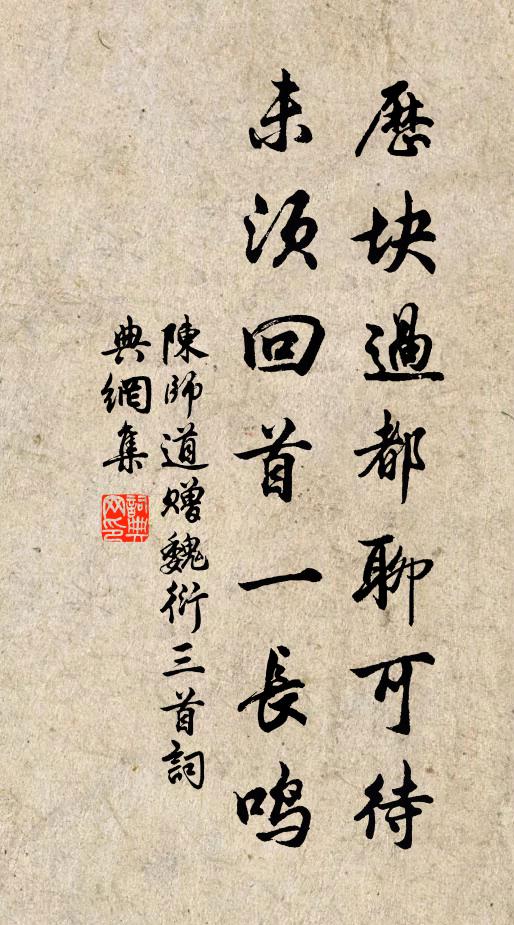 歷块過都聊可待
未須回首一長鸣
陳師道贈魏衍三首詞
典網集
詞典
网印